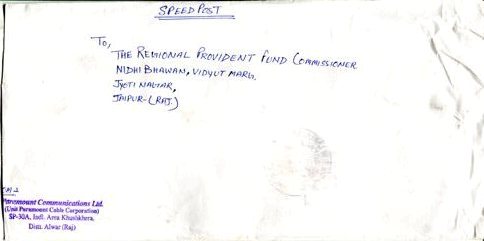 SPEED POST
To,
THE REGIONAL PROVIDENT FUND COMMISSIONER
NIDHI BHAWAN, VIDYUT MARG,
JYOTI NAGAR,
JAIPUR-(RAJ.)
Paramount Communications Ltd.
(Unit Paramount Cable Corporation)
SP-30A, Indl. Area Khushkhera,
Distt. Alwar (Raj)